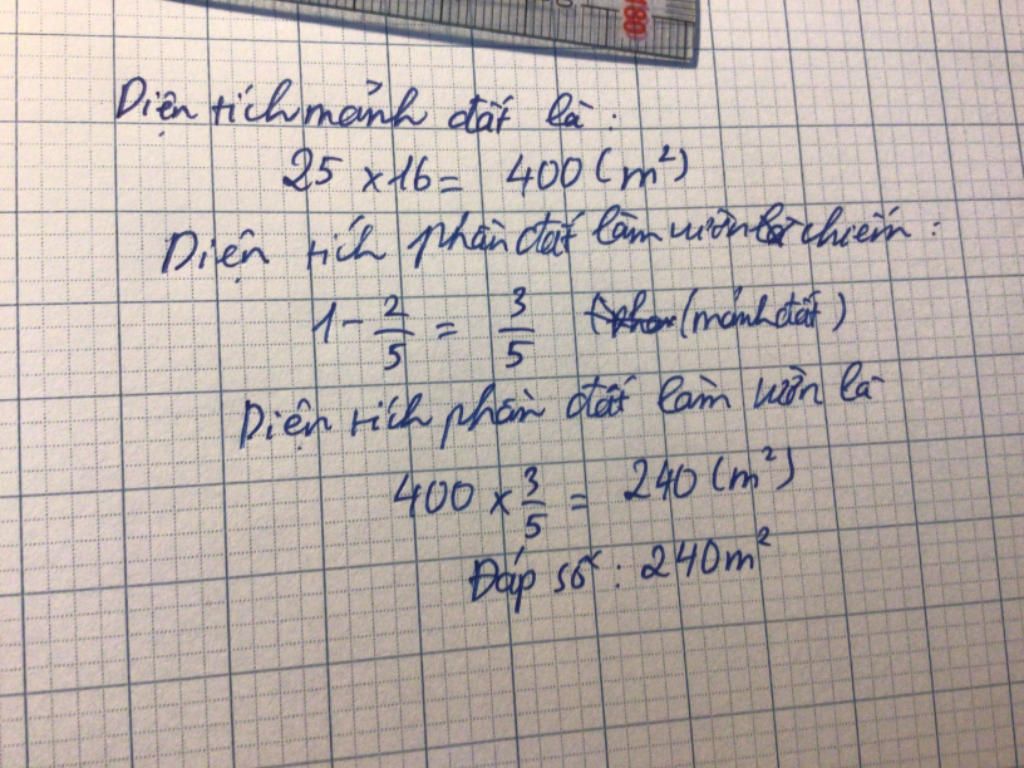 180
Diện tích mảnh đất là :
25 × 16 = 400 (m²)
Diện tích phần đất làm vườn chiếm :
1 - 2/5 = 3/5 (mảnh đất)
Diện tích phần đất làm vườn là
400 × 3/5 = 240 (m²)
Đáp số : 240m²